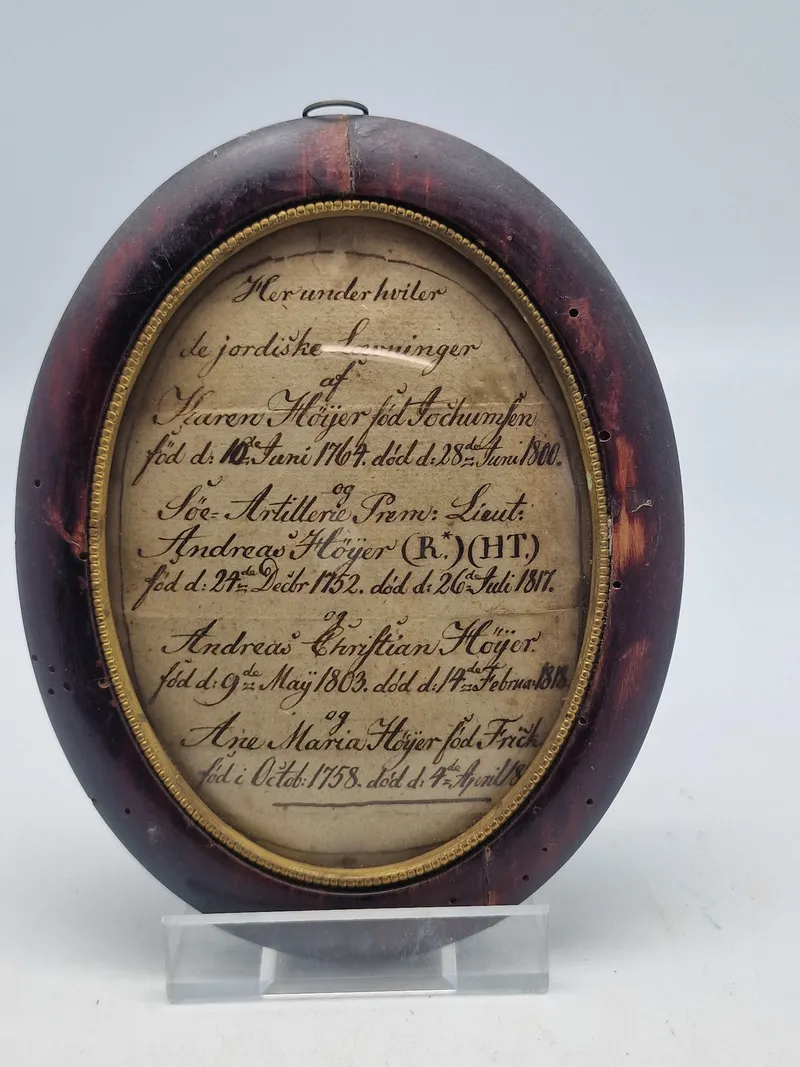 Her under hviler
de jordiske Levninger
af
Karen Höÿer föd Jochumsen
föd d: 10de Juni 1764. död d: 28de Juni 1800.
og
Söe- Artillerie Prem: Lieut:
Andreas Höÿer (R.*) (HT.)
föd d: 24de Decbr 1752. död d: 26de Juli 1817.
og
Andreas Christian Höÿer.
föd d: 9de Maÿ 1803. död d: 14de Februa: 1818.
og
Ane Maria Höÿer föd Frich
föd i Octob: 1758. död d: 4de April 18